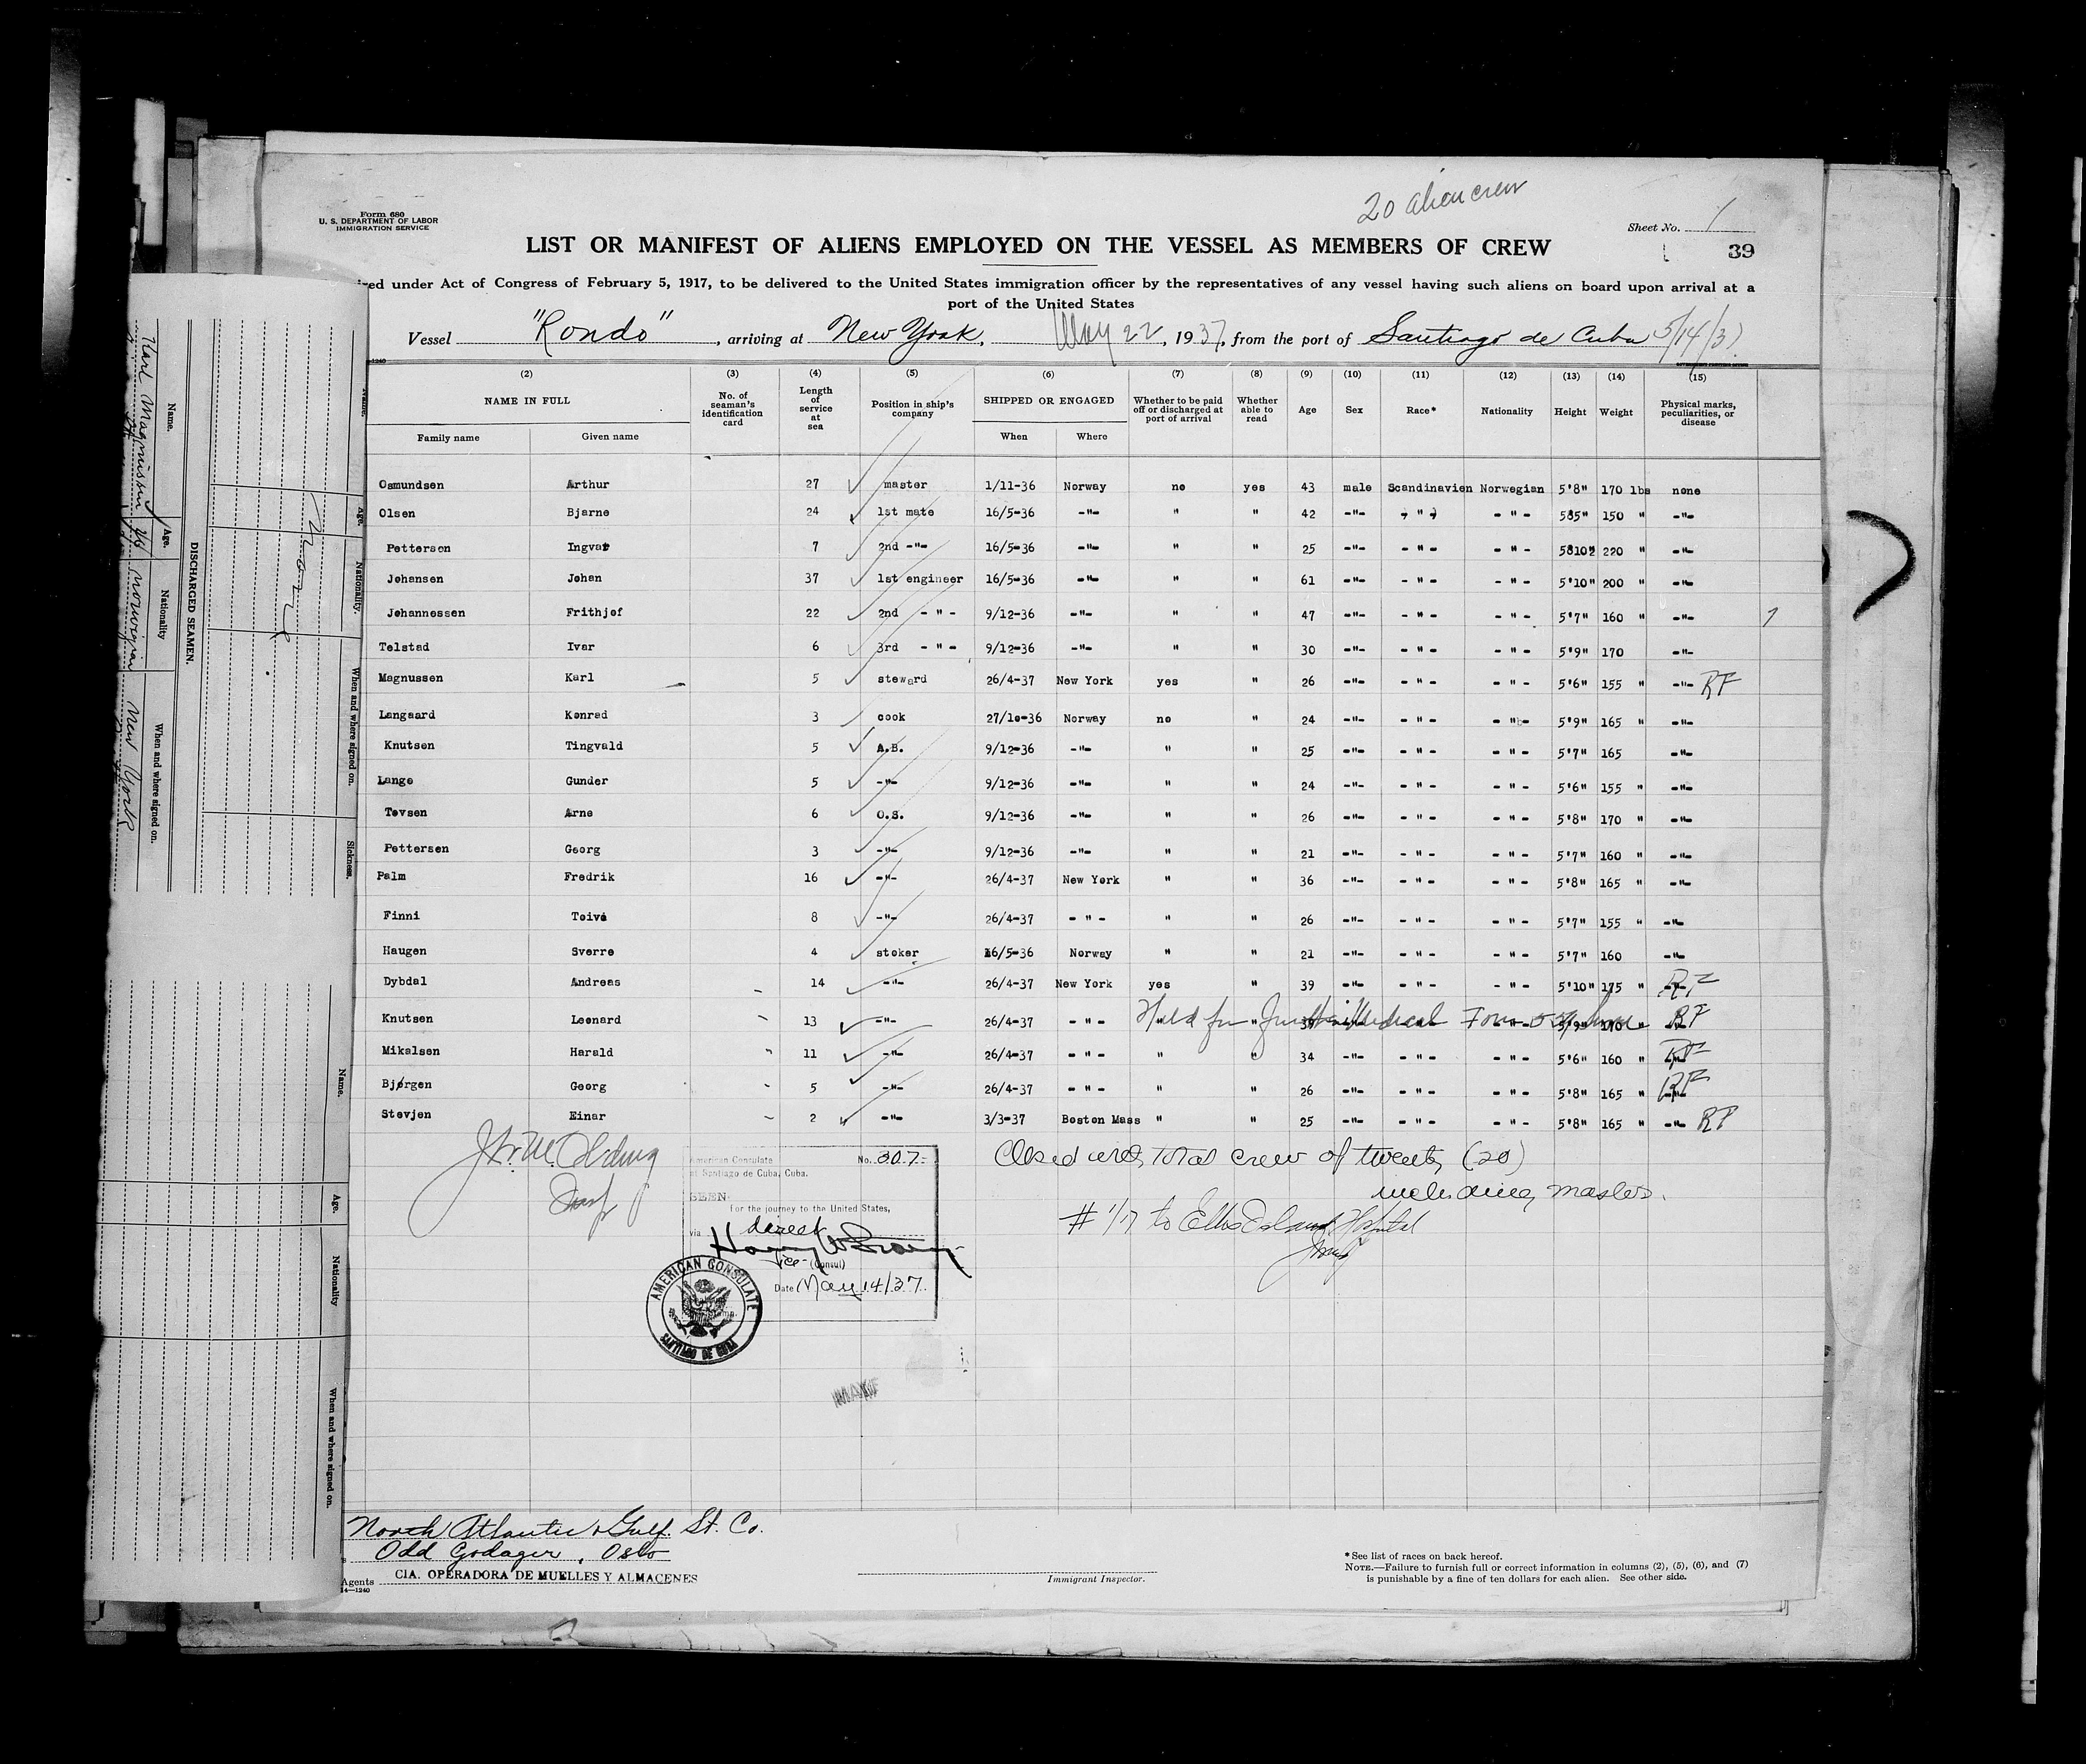 20 alien crew
Form 680
U. S. DEPARTMENT OF LABOR
IMMIGRATION SERVICE
Sheet No. 1
LIST OR MANIFEST OF ALIENS EMPLOYED ON THE VESSEL AS MEMBERS OF CREW
39
under Act of Congress of February 5, 1917, to be delivered to the United States immigration officer by the representatives of any vessel having such aliens on board upon arrival at a
port of the United States
Vessel "Rondo", arriving at New York, May 22, 1937, from the port of Santiago de Cuba 5/14/37
(2) (3) (4) (5) (6) (7) (8) (9) (10) (11) (12) (13) (14) (15)
NAME IN FULL No. of seaman's identification card Length of service at sea Position in ship's company SHIPPED OR ENGAGED Whether to be paid off or discharged at port of arrival Whether able to read Age Sex Race* Nationality Height Weight Physical marks, peculiarities, or disease
Family name Given name When Where
Osmundsen Arthur 27 master 1/11-36 Norway no yes 43 male Scandinavien Norwegian 5'8" 170 lbs none
Olsen Bjarne 24 1st mate 16/5-36 -"- " " 42 -"- - " - - " - 585" 150 " -"-
Petterson Ingvar 7 2nd -"- 16/5-36 -"- " " 25 -"- - " - - " - 5810" 220 " -"-
Johansen Johan 37 1st engineer 16/5-36 -"- " " 61 -"- - " - - " - 5'10" 200 " -"-
Johannessen Frithjof 22 2nd - " - 9/12-36 -"- " " 47 -"- - " - - " - 5'7" 160 " -"-
Telstad Ivar 6 3rd - " - 9/12-36 -"- " " 30 -"- - " - - " - 5'9" 170 -"-
Magnussen Karl 5 steward 26/4-37 New York yes " 26 -"- - " - - " - 5'6" 155 " -"- RF
Langaard Konrad 3 cook 27/10-36 Norway no " 24 -"- - " - - " - 5'9" 165 " -"-
Knutsen Tingvald 5 A.B. 9/12-36 -"- " " 25 -"- - " - - " - 5'7" 165 -"-
Lange Gunder 5 -"- 9/12-36 -"- " " 24 -"- - " - - " - 5'6" 155 " -"-
Tevsen Arne 6 O.S. 9/12-36 -"- " " 26 -"- - " - - " - 5'8" 170 " -"-
Pettersen Georg 3 -"- 9/12-36 -"- " " 21 -"- - " - - " - 5'7" 160 " -"-
Palm Fredrik 16 -"- 26/4-37 New York " " 36 -"- - " - - " - 5'8" 165 " -"-
Finni Toivo 8 -"- 26/4-37 - " - " " 26 -"- - " - - " - 5'7" 155 " -"-
Haugen Sverre 4 stoker 16/5-36 Norway " " 21 -"- - " - - " - 5'7" 160 -"-
Dybdal Andreas 14 -"- 26/4-37 New York yes " 39 -"- - " - - " - 5'10" 175 " -"- RF
Knutsen Leonard 13 -"- 26/4-37 - " - Held for Medical Form 5'9" 170 RF
Mikalsen Harald 11 -"- 26/4-37 - " - " " 34 -"- - " - - " - 5'6" 160 " -"- RF
Bjørgen Georg 5 -"- 26/4-37 - " - " " 26 -"- - " - - " - 5'8" 165 " -"- RF
Stevjen Einar 2 -"- 3/3-37 Boston Mass " " 25 -"- - " - - " - 5'8" 165 " -"- RF
Insp
American Consulate No. 307
at Santiago de Cuba, Cuba.
SEEN
For the journey to the United States,
via direct
Vice- (Consul)
Date May 14/37
AMERICAN CONSULATE
SANTIAGO DE CUBA
Closed with total crew of twenty (20)
including master.
#1/17 to Ellis Island Hospital
North Atlantic & Gulf St. Co.
Odd Godager, Oslo
Agents CIA. OPERADORA DE MUELLES Y ALMACENES
14-1240
Immigrant Inspector.
*See list of races on back hereof.
NOTE.—Failure to furnish full or correct information in columns (2), (5), (6), and (7)
is punishable by a fine of ten dollars for each alien. See other side.
Name. Age. Nationality. When and where signed on. Sickness.
None
DISCHARGED SEAMEN.
Name. Age. Nationality When and where signed on.
Karl Magnussen 26 Norwegian New York
Name. Age. Nationality When and where signed on.